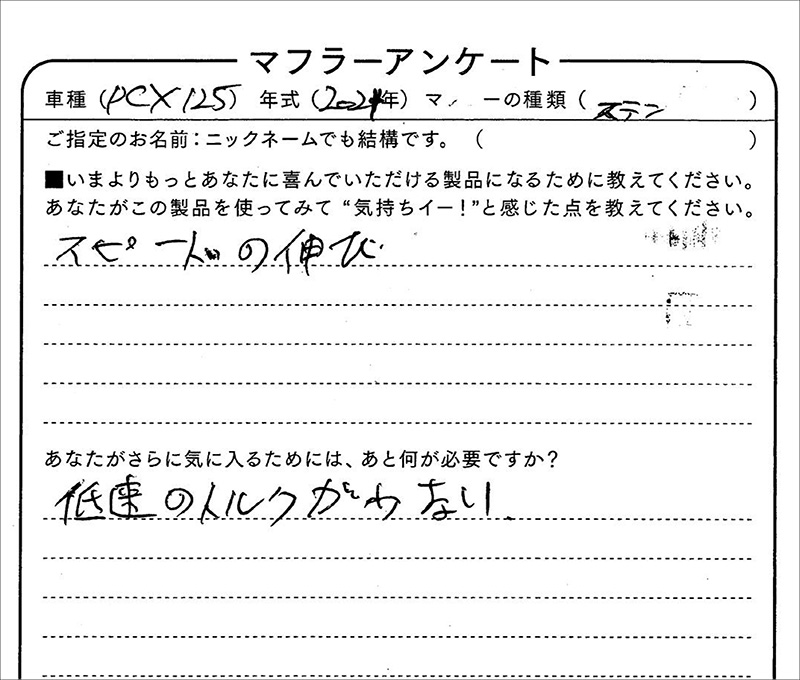 マフラーアンケート
車種（PCX125）年式（2024年）マ ーの種類（ステン）
ご指定のお名前：ニックネームでも結構です。（ ）
■いまよりもっとあなたに喜んでいただける製品になるために教えてください。
あなたがこの製品を使ってみて“気持ちイー！”と感じた点を教えてください。
スピードの伸び
あなたがさらに気に入るためには、あと何が必要ですか？
低速のトルクが ない